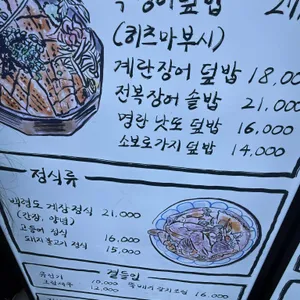 장어덮밥 27,
(히츠마부시)
계란장어 덮밥 18,000
전복장어 솥밥 21,000
명란 낫또 덮밥 16,000
소보로가지 덮밥 14,000
정식류
백령도 게장정식 21,000
(간장, 양념)
고등어 정식 16,000
돼지불고기 정식 15,000
곁들임
10,000
12,000
16,000